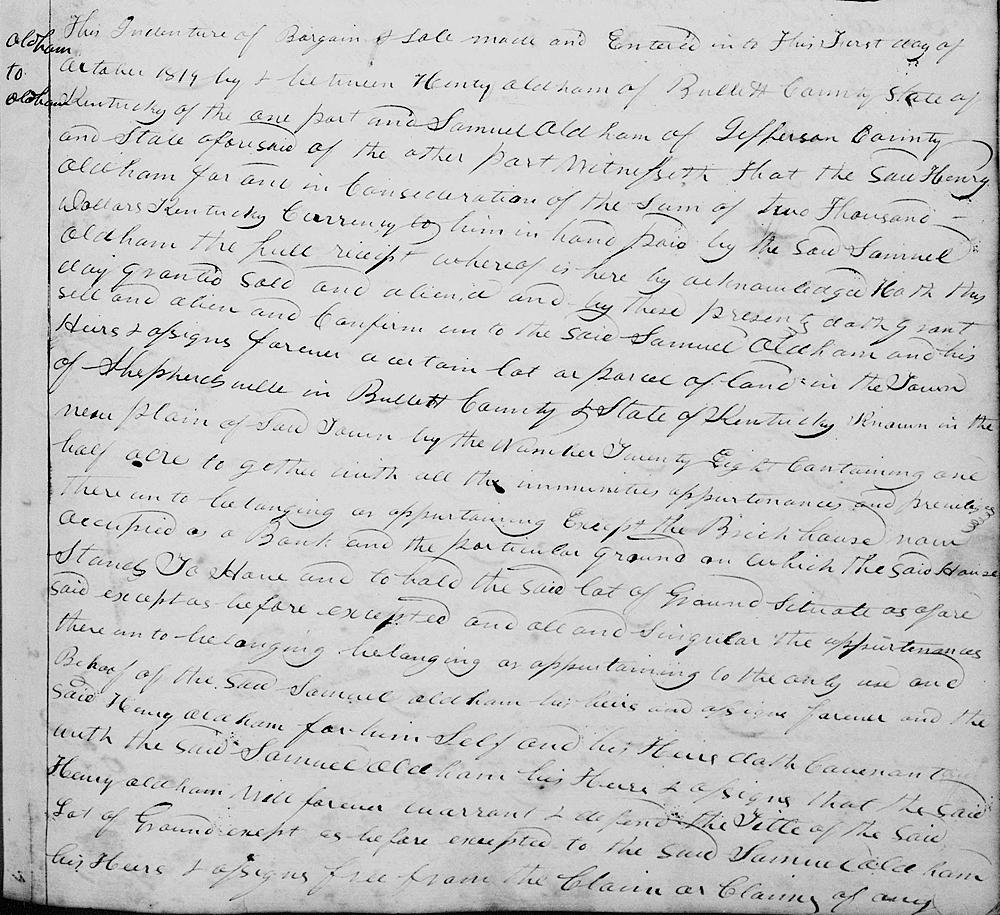 Oldham
to
Oldham
This Indenture of Bargain & Sale made and Entered in to This First day of
October 1819 by & between Henry Oldham of Bullett County State of
Kentucky of the one part and Samuel Oldham of Jefferson County
and State aforesaid of the other part Witnesseth That the Said Henry
Oldham for and in Consideration of the Sum of two Thousand
Dollars Kentucky Currency to him in hand paid by the Said Samuel
Oldham the full receipt whereof is here by acknowledged Hath this
day granted Sold and aliened and by these presents doth grant
sell and alien and Confirm unto the Said Samuel Oldham and his
Heirs & assigns forever a certain lot or parcel of land in the Town
of Shepherdsville in Bullett County & State of Kentucky Known in the
new plain of Said Town by the Number Twenty Eight Containing one
half acre to gether with all the immunities appurtenances and previledges
there un to belonging or appurtaining Except the Brick house now
occupied as a Bank and the particular ground on which the Said House
Stands To Have and to hold the Said lot of Ground Situate as afore
said except as before excepted and all and Singular the appurtenances
there un to belonging belonging or appurtaining to the only use and
Behoof of the Said Samuel Oldham his heirs and assigns forever and the
Said Henry Oldham for him Self and his Heirs doth Covenant
with the Said Samuel Oldham his Heirs & assigns that the Said
Henry Oldham Will forever warrant & defend the Title of the Said
Lot of Ground exept as before excepted to the Said Samuel Oldham
his Heirs & assigns free from the Claim or Claims of any